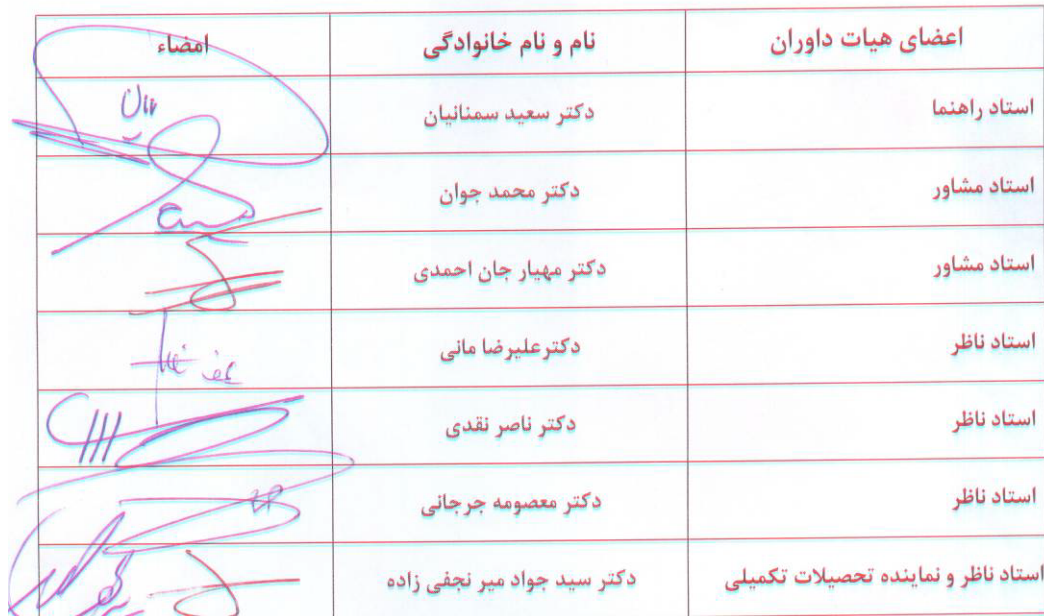 اعضای هیات داوران نام و نام خانوادگی امضاء
استاد راهنما دکتر سعید سمنانیان
استاد مشاور دکتر محمد جوان
استاد مشاور دکتر مهیار جان احمدی
استاد ناظر دکترعلیرضا مانی
استاد ناظر دکتر ناصر نقدی
استاد ناظر دکتر معصومه جرجانی
استاد ناظر و نماینده تحصیلات تکمیلی دکتر سید جواد میر نجفی زاده